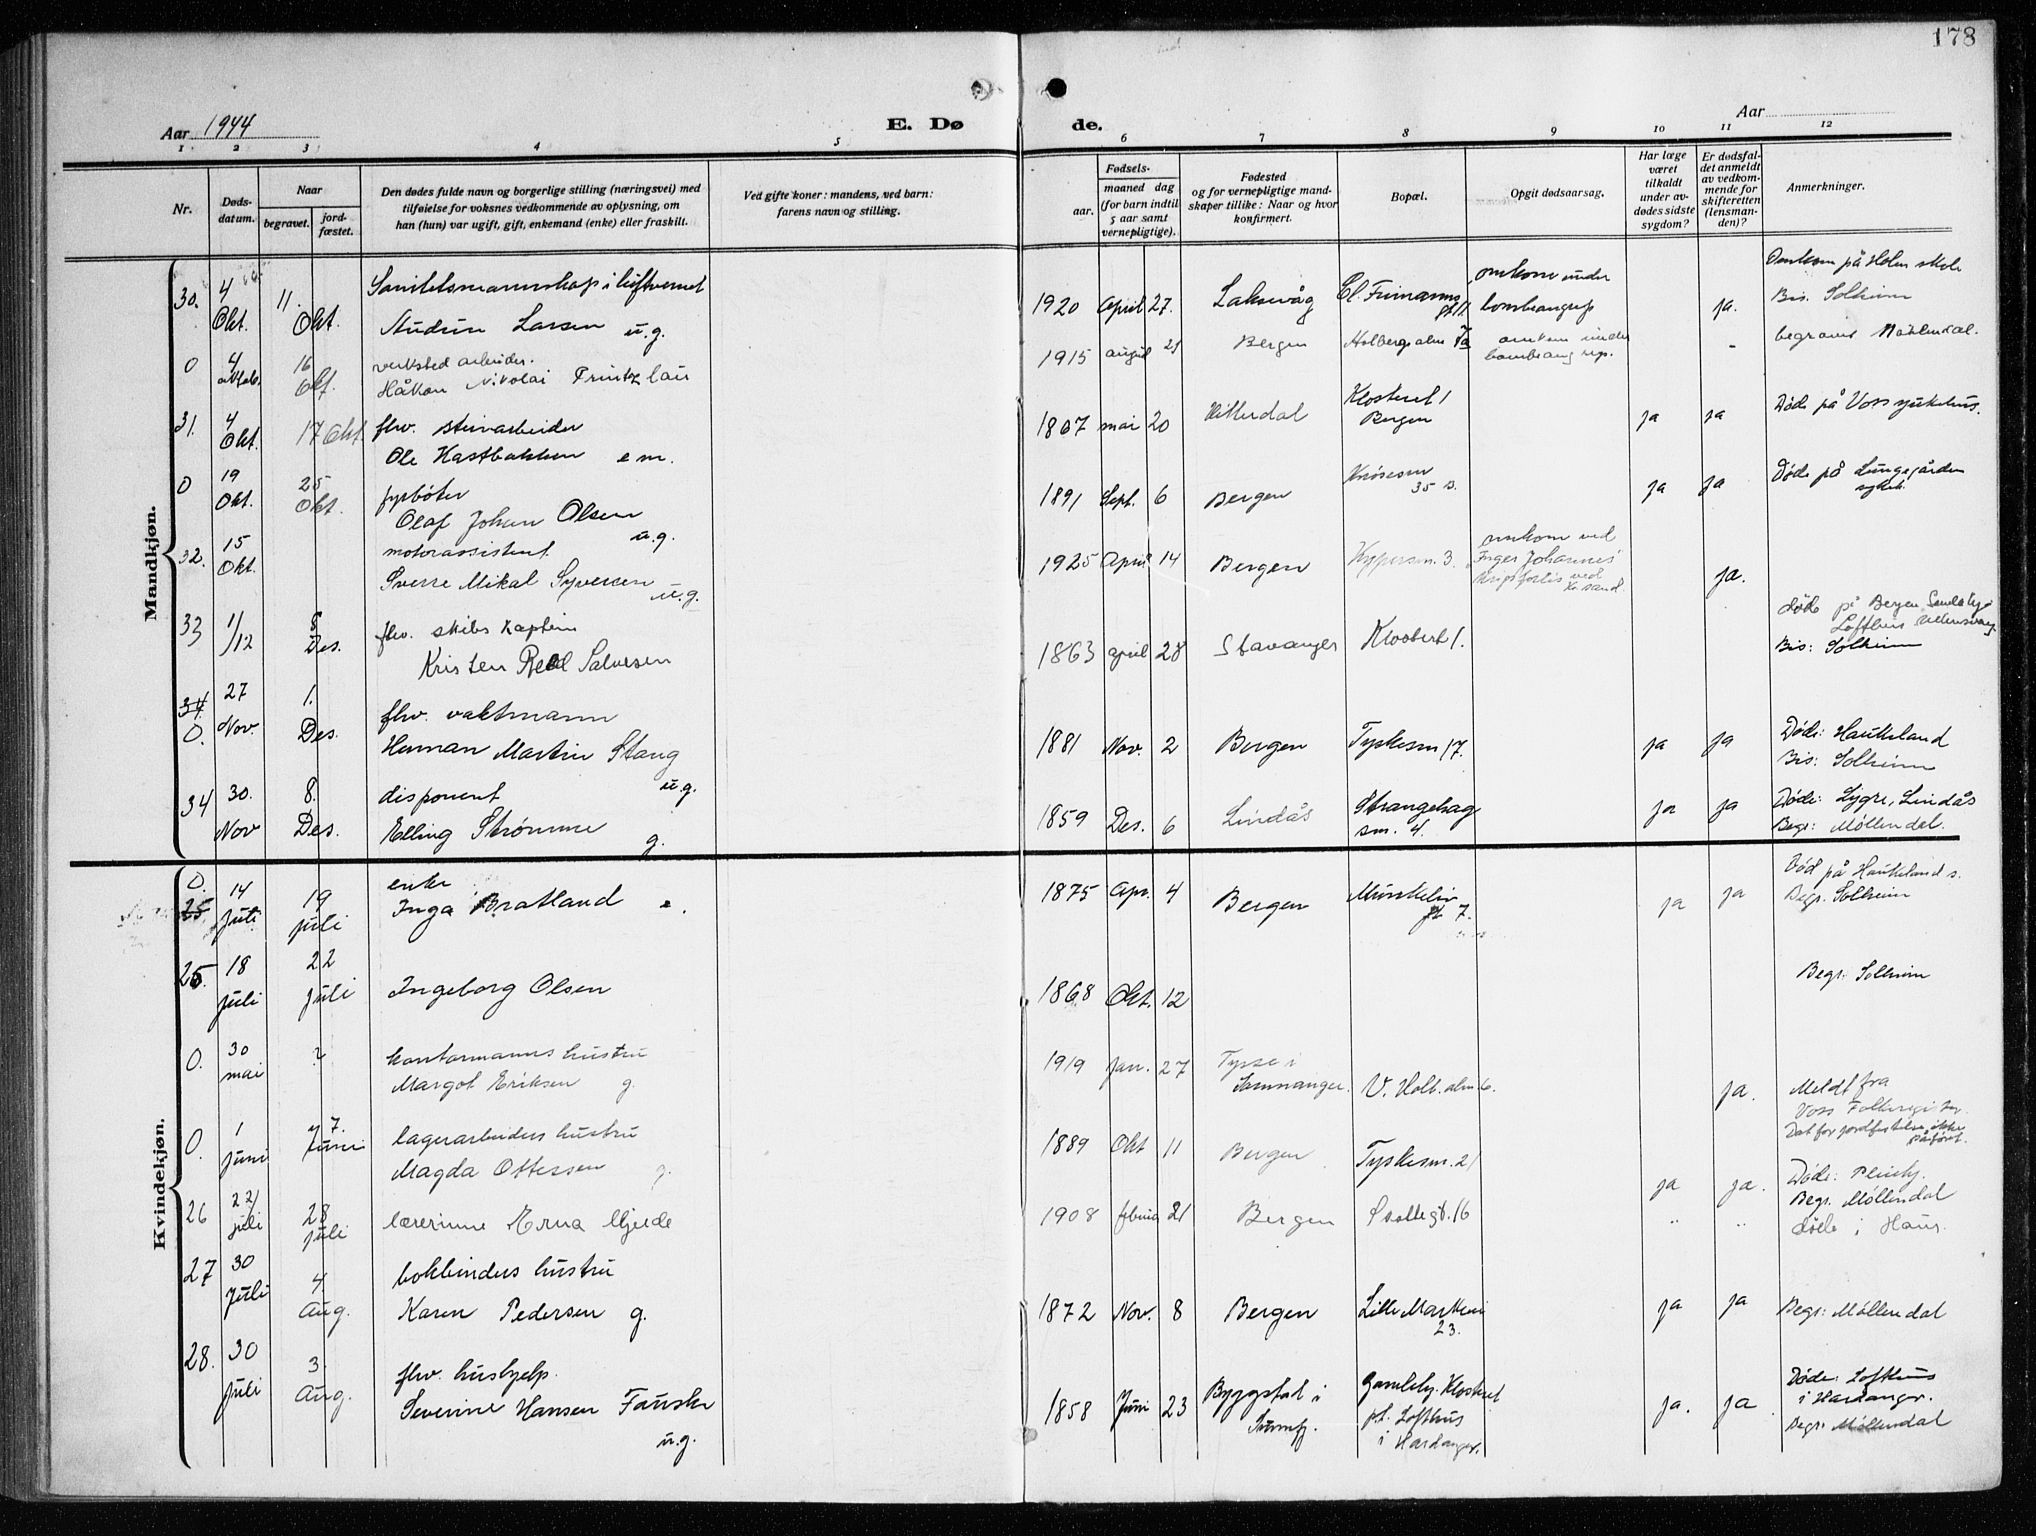 178
Aar 1944
E. Døde.
Aar
1 2 3 4 5 6 7 8 9 10 11 12
Nr.
Dødsdatum.
Naar
begravet.
jordfæstet.
Den dødes fulde navn og borgerlige stilling (næringsvei) med
tilføielse for voksnes vedkommende av oplysning, om
han (hun) var ugift, gift, enkemand (enke) eller fraskilt.
Ved gifte koner: mandens, ved barn:
farens navn og stilling.
Fødsels-
aar.
maaned dag
(for barn indtil
5 aar samt
vernepligtige).
Fødested
og for vernepligtige mand-
skaper tillike: Naar og hvor
konfirmert.
Bopæl.
Opgit dødsaarsag.
Har læge
været
tilkaldt
under av-
dødes sidste
sygdom?
Er dødsfal-
det anmeldt
av vedkom-
mende for
skifteretten
(lensman-
den)?
Anmerkninger.
Mandkjøn.
30. 4 Okt. 11. Okt. Sanitetsmannskap i luftvernet
Audun Larsen u.g. 1920 April 27. Laksevåg omkom under bombeangrep ja. Omkom på Holen skole
Bis. Solheim
0 4 16 Okt. verksted arbeider.
Håkon Nikolai 1915 august Bergen omkom under bombeangrep. - begravd Møhlendal.
31. 4 Okt. 17 Okt. fhv. steinarbeider
Ole Hastbakken e m. 1867 mai 20 Hitterdal Klosteret 1
Bergen ja ja Døde på Voss sjukehus.
0 19 Okt. 25 Okt. fyrbøter
Olaf Johan Olsen u.g. 1891 Sept. 6 Bergen 35 B. ja ja Døde på Lungegården
sykeh.
32. 15 Okt. motorassistent
Sverre Mikal Syversen u.g. 1925 April 14 Bergen 3. omkom ved
Inger Johannes'
krigsforlis ved
Kr.sand. ja.
33 1/12 8 Des. fhv. skibs kaptein
Kristen Salvesen 1863 april 28 Stavanger Klostert 1. døde på Bergen
Lofthus
Bis: Solheim
34. 0. 27 Nov. 1. Des. fhv. vaktmann
Herman Martin Stang u.g. 1881 Nov. 2 Bergen Tyskesm 17. ja ja Døde: Haukeland
Bis: Solheim
34 30. Nov 8. Des. disponent
Elling Strømme g. 1859 Des. 6 Lindås Strangehag
sm. 4. ja ja Døde: Lygre, Lindås
Begr: Møllendal.
Kvindekjøn.
0. 25 14 juli 19 juli enke
Inga Bratland e. 1875 Apr. 4 Bergen 7. ja ja Død på Haukeland s.
Begr. Solheim
25. 18 juli 22 juli Ingeborg Olsen 1868 Okt. 12 Begr. Solheim
0. 30 mai ? kontormanns hustru
Margot Eriksen g. 1919 jan. 27 Tysse i
Samnanger. V. Holb. alm. 6. ja. Meldt fra
Voss Folkeregister.
Dat for jordfestelse ikke
påført.
0. 1 juni 7. juni lagerarbeiders hustru
Magda Ottersen g. 1889 Okt 11 Bergen Tyskesm. 21 ja ja. Døde: Pleiehj.
Begr. Møllendal
26 22/ juli 28 juli lærerinne Erna Mjelde 1908 februar 21 Bergen 16 " " døde i Haus.
27 30 Juli 4 Aug. bokbinders hustru
Karen Pedersen g. 1872 Nov. 8 Bergen Lille Markevei
23. ja ja Begr: Møllendal
28. 30 Juli 3. Aug. fhv. hushjelp.
Severine Hansen Fauske u.g. 1858 Juni 23 Byggstad i
Sunnfj. Gamlehj. Klosteret
p.t. Lofthus
i Hardanger. ja. ja Døde: Lofthus
i Hardanger.
Begr: Møllendal